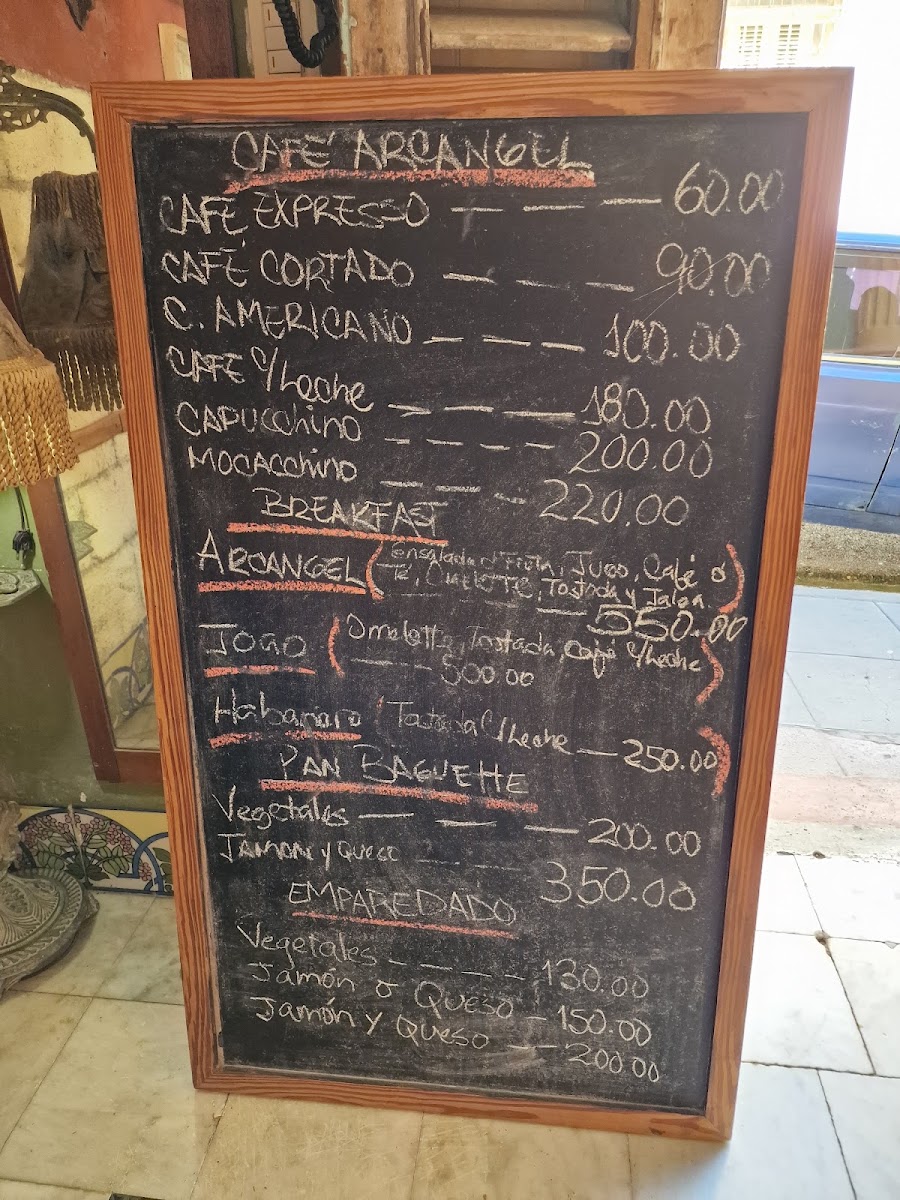 CAFÉ ARCANGEL
CAFÉ EXPRESSO — — — 60.00
CAFÉ CORTADO — — — 90.00
C. AMERICANO — — — 100.00
CAFE C/Leche — — — 180.00
CAPUCChiNO — — — 200.00
MOCACChiNO — — — 220.00
BREAKFAST
ARCANGEL (Ensalada d' Fruta, Jugo, Café ó
Té, Tostada y Jamón)
— — 550.00
JOAO (Omelette, Tostada, Café c/Leche
— — — 500.00)
Habanero (Tostada C/Leche — 250.00)
PAN BAGUETTE
Vegetales — — — 200.00
JAMON y QUESO — — — 350.00
EMPAREDADO
Vegetales — — — — 130.00
Jamón o Queso — 150.00
Jamón y Queso — 200.00